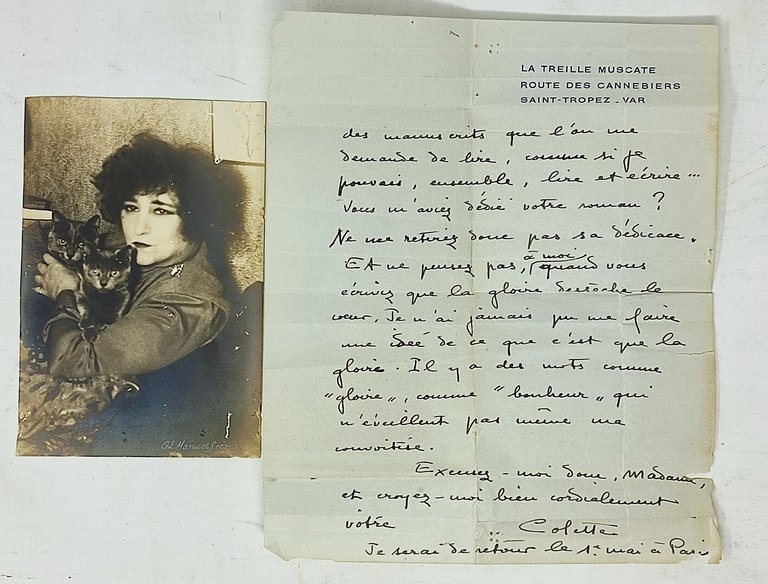 LA TREILLE MUSCATE
ROUTE DES CANNEBIERS
SAINT-TROPEZ - VAR
des manuscrits que l'on me
demande de lire, comme si je
pouvais, ensemble, lire et écrire...
Vous m'aviez dédié votre roman ?
Ne me retirez donc pas sa dédicace.
à moi
Et ne pensez pas, quand vous
écrivez que la gloire dessèche le
cœur. Je n'ai jamais pu me faire
une idée de ce que c'est que la
gloire. Il y a des mots comme
"gloire", comme "bonheur" qui
n'éveillent pas même ma
convoitise.
Excusez-moi donc, Madame,
et croyez-moi bien cordialement
vôtre
Colette
Je serai de retour le 1er mai à Paris
G.L. Manuel Frères